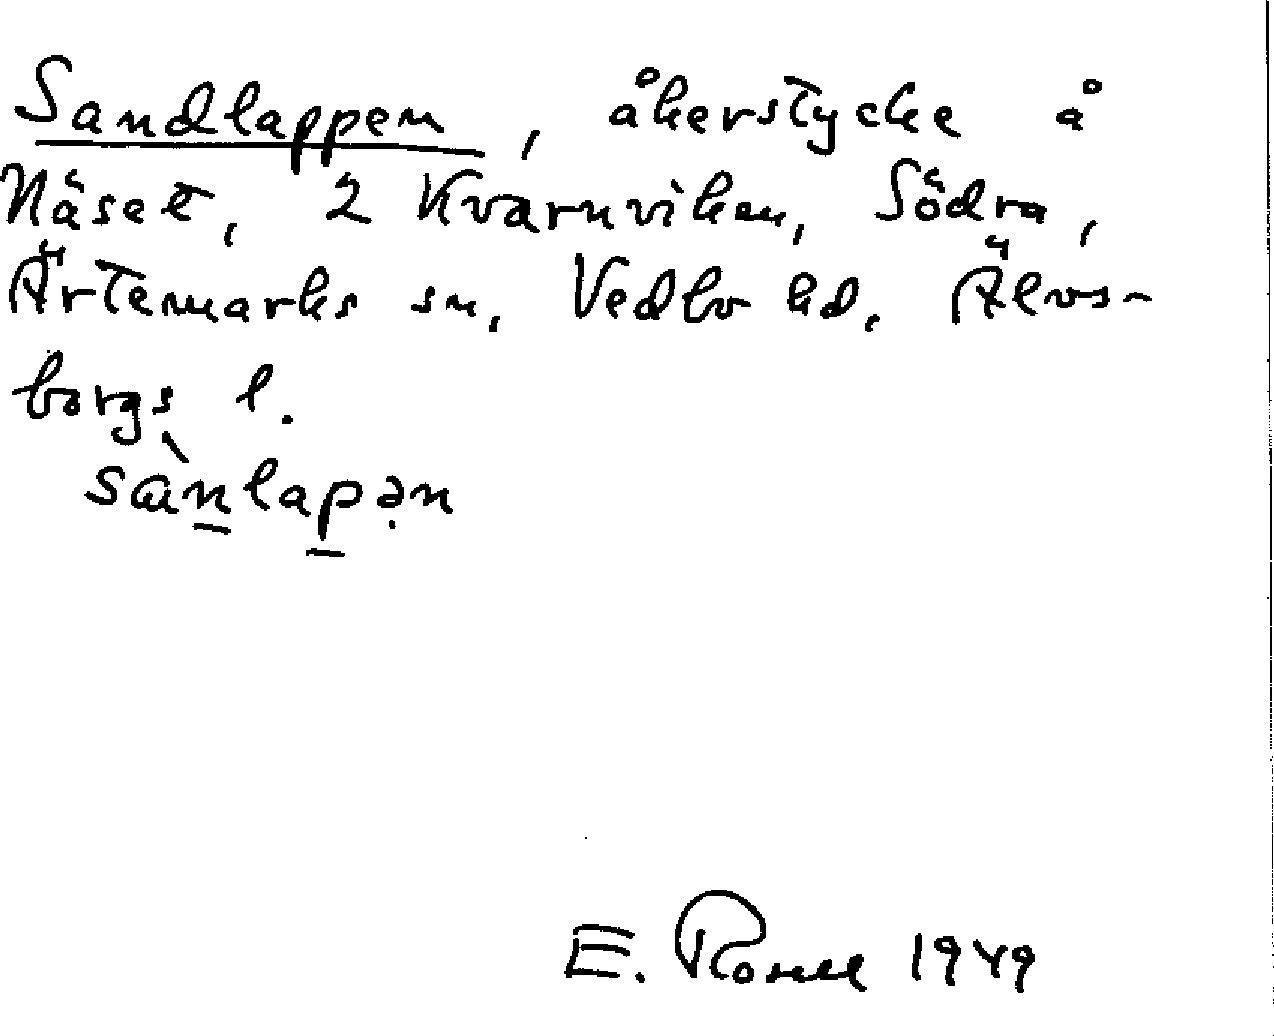 Sandlappen, åkerstycke å
Näset, 2 Kvarnviken, Södra,
Ärtemarks sn, Vedbo hd, Älvs-
borgs l.
sànlapən
E. 1949